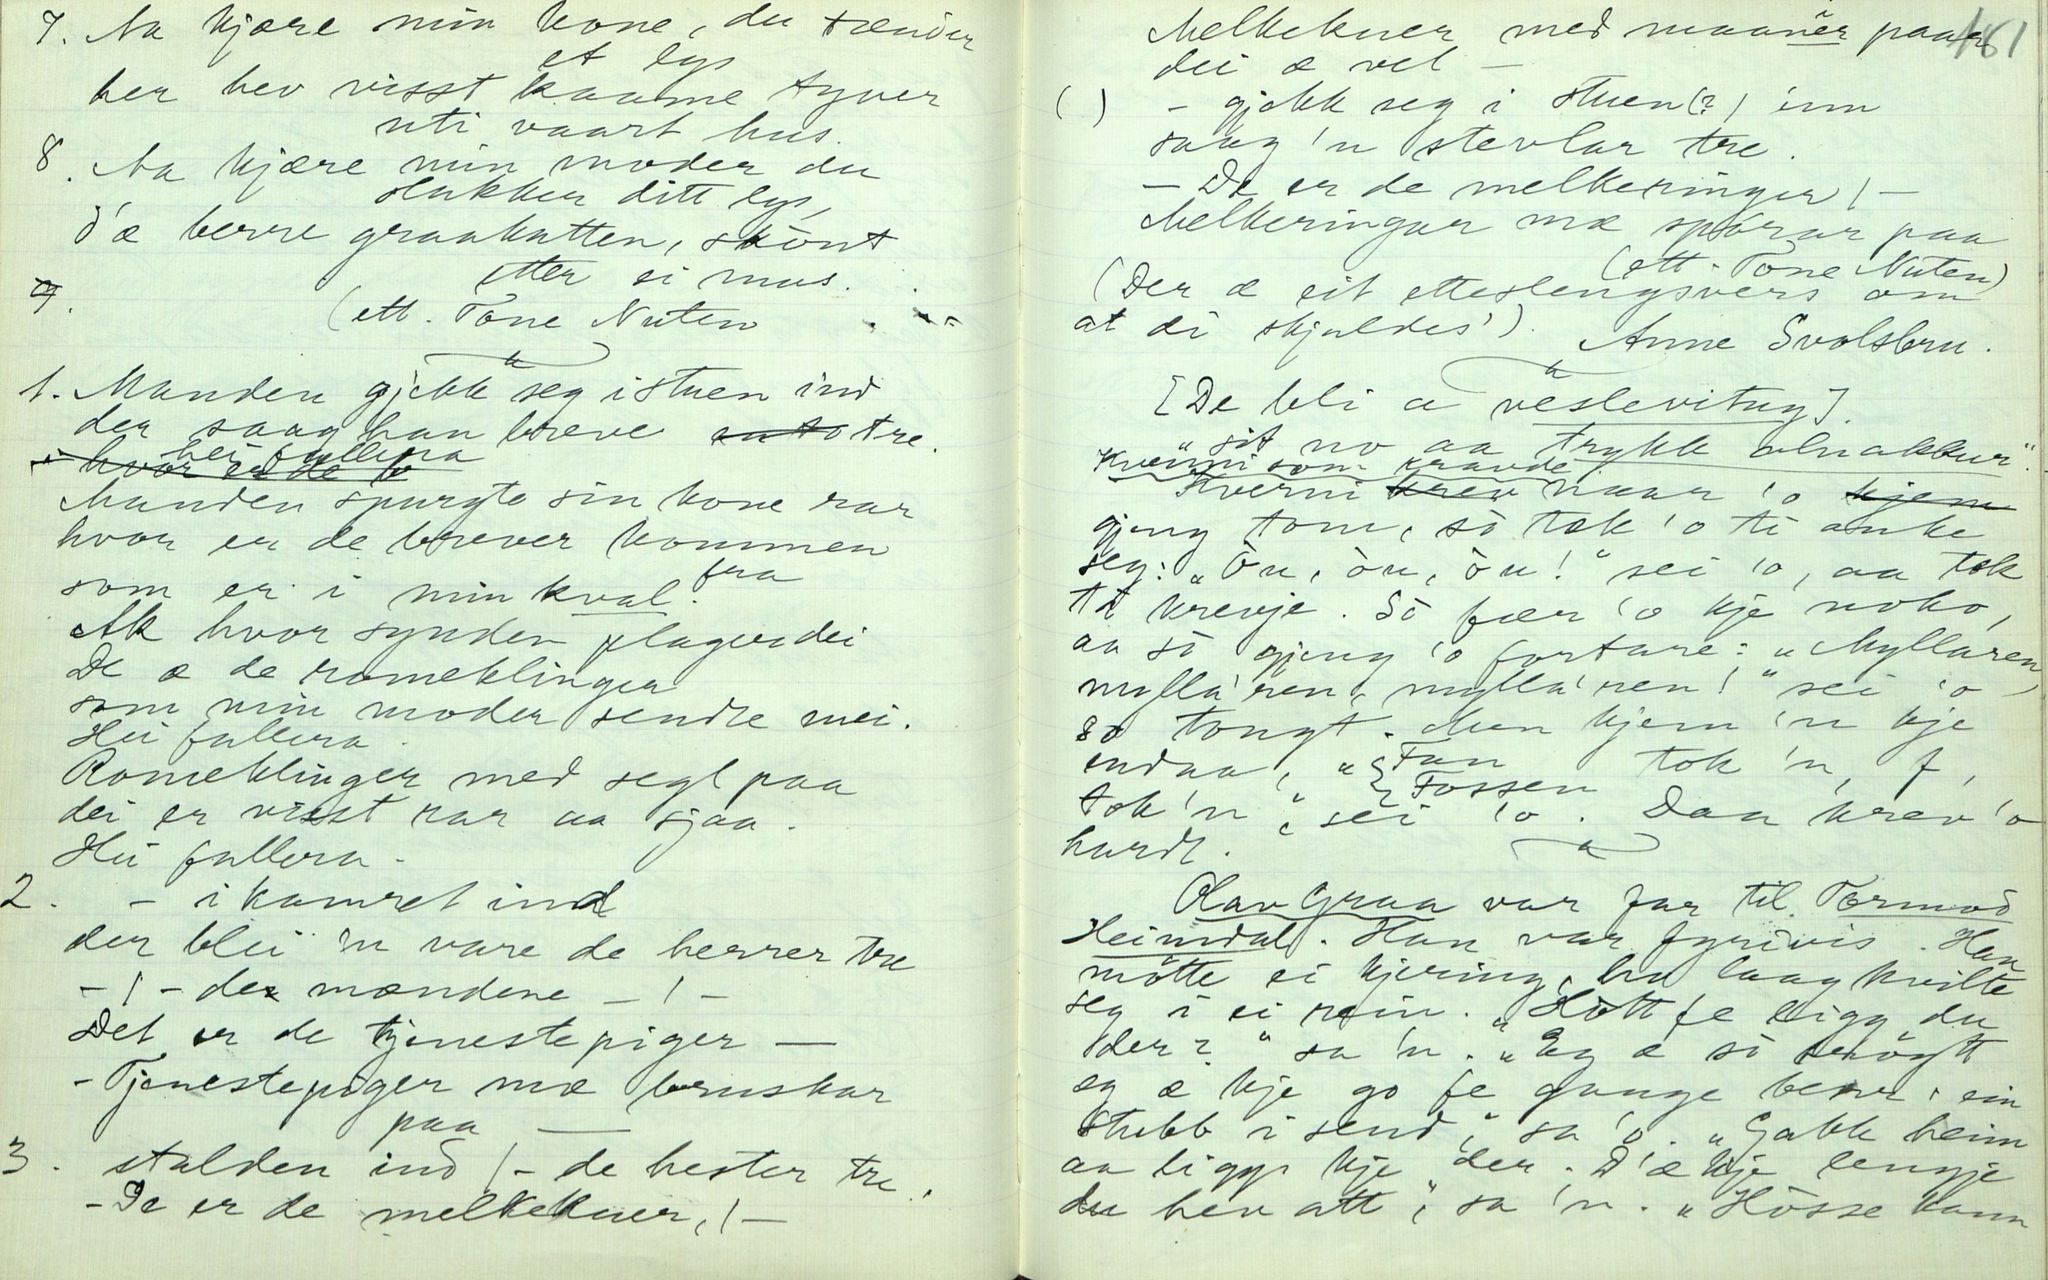 7. Aa kjære min kone, du tænder
et lys
her hev visst kaame tyver
uti vaart hus.
8. Aa kjære min moder du
slukker ditt lys,
d'æ berre graakatten, skönt
etter ei mus.
9.
(ett. Tone Nuten
1. Manden gjekk seg i stuen ind
der saag han breve tre.
hei fallera
hvor er de
Manden spurgte sin kone rar
hvor er de brever kommen
fra
som er i min kval.
Ak hvor synden plager dei
De æ de romeklinger
som min moder sendte mei.
Hei fallera.
Romeklinger med segl paa
dei er visst rar aa sjaa.
Hei fallera.
2. - i kamret ind
der blei 'n vare de herrer tre
- ! - de mændene - ! -
Det er de tjenestepiger —
- Tjenestepiger mæ bruskar
paa —
3. stalden ind ! - de hester tre.
- De er de melkekuer, ! -
Melkekuer med maaner paa 181
dei æ vel -
( ) - gjekk seg i stuen (?) inn
saag 'n stevlar tre.
- De er de melkeringer ! -
Melkeringar mæ sporar paa
(ett. Tone Nuten)
(Der æ eit etteslengsvers om
at di skjuldes').
Anne Svolsbru.
[De bli a veslevitug].
"sit no aa trykk alnakkur".
Kvenni som kravde
Kverni krev naar 'o kjem
gjeng tom, så tæk 'o te anke
seg: "Òu, òu, òu!" sei 'o, aa tæk
te krevje. Så fær 'o kje noko,
aa så gjeng 'o fortare: "Myllaren,
mylla'ren, mylla'ren!" sei 'o
so tongt. Men kjem 'n kje
endaa, "Fan tok 'n, f,
Fossen
tok 'n", sei 'o. Daa krev 'o
hardt.
Olav Graa var far til Tormod
Heimdal. Han var fyrivis. Han
mötte ei kjering, ho laag kvilte
seg i ei rein. "Hött fe ligg du
der?" sa 'n. "Eg æ så
eg æ kje go fe gange berr' ein
stubb i send," sa 'o. "Gakk heim
aa ligg kje der. D'æ kje lengje
du hev att", sa 'n. "Hösse kann